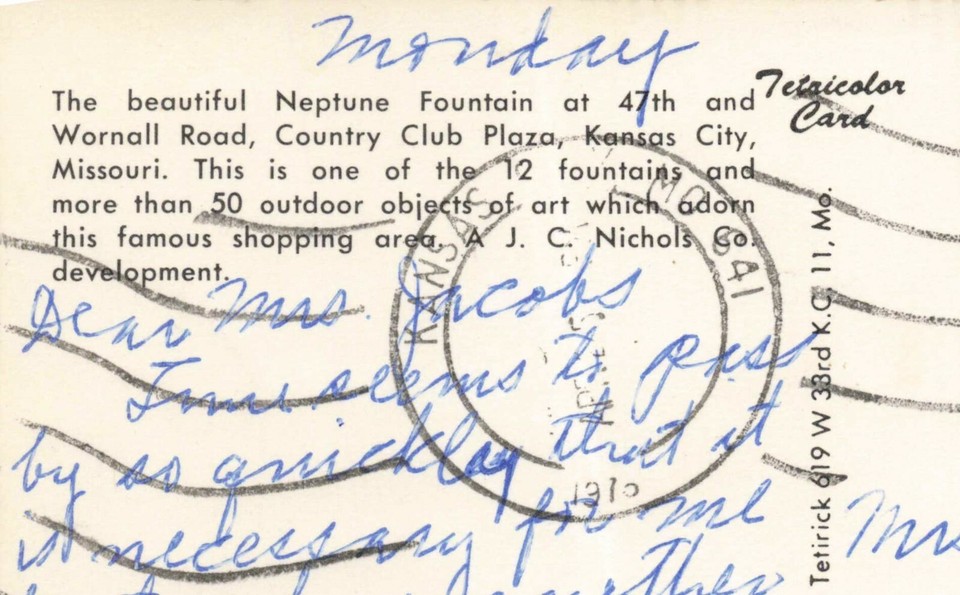 Monday
The beautiful Neptune Fountain at 47th and
Wornall Road, Country Club Plaza, Kansas City,
Missouri. This is one of the 12 fountains and
more than 50 outdoor objects of art which adorn
this famous shopping area. A J. C. Nichols Co.
development.
Tetricolor
Card
KANSAS MO 641
APR
Dear Mrs. Jacobs
Time seems to pass
by so quickly that it
is necessary for me
Tetirick 619 W 33rd K.C. 11, Mo.
Mrs